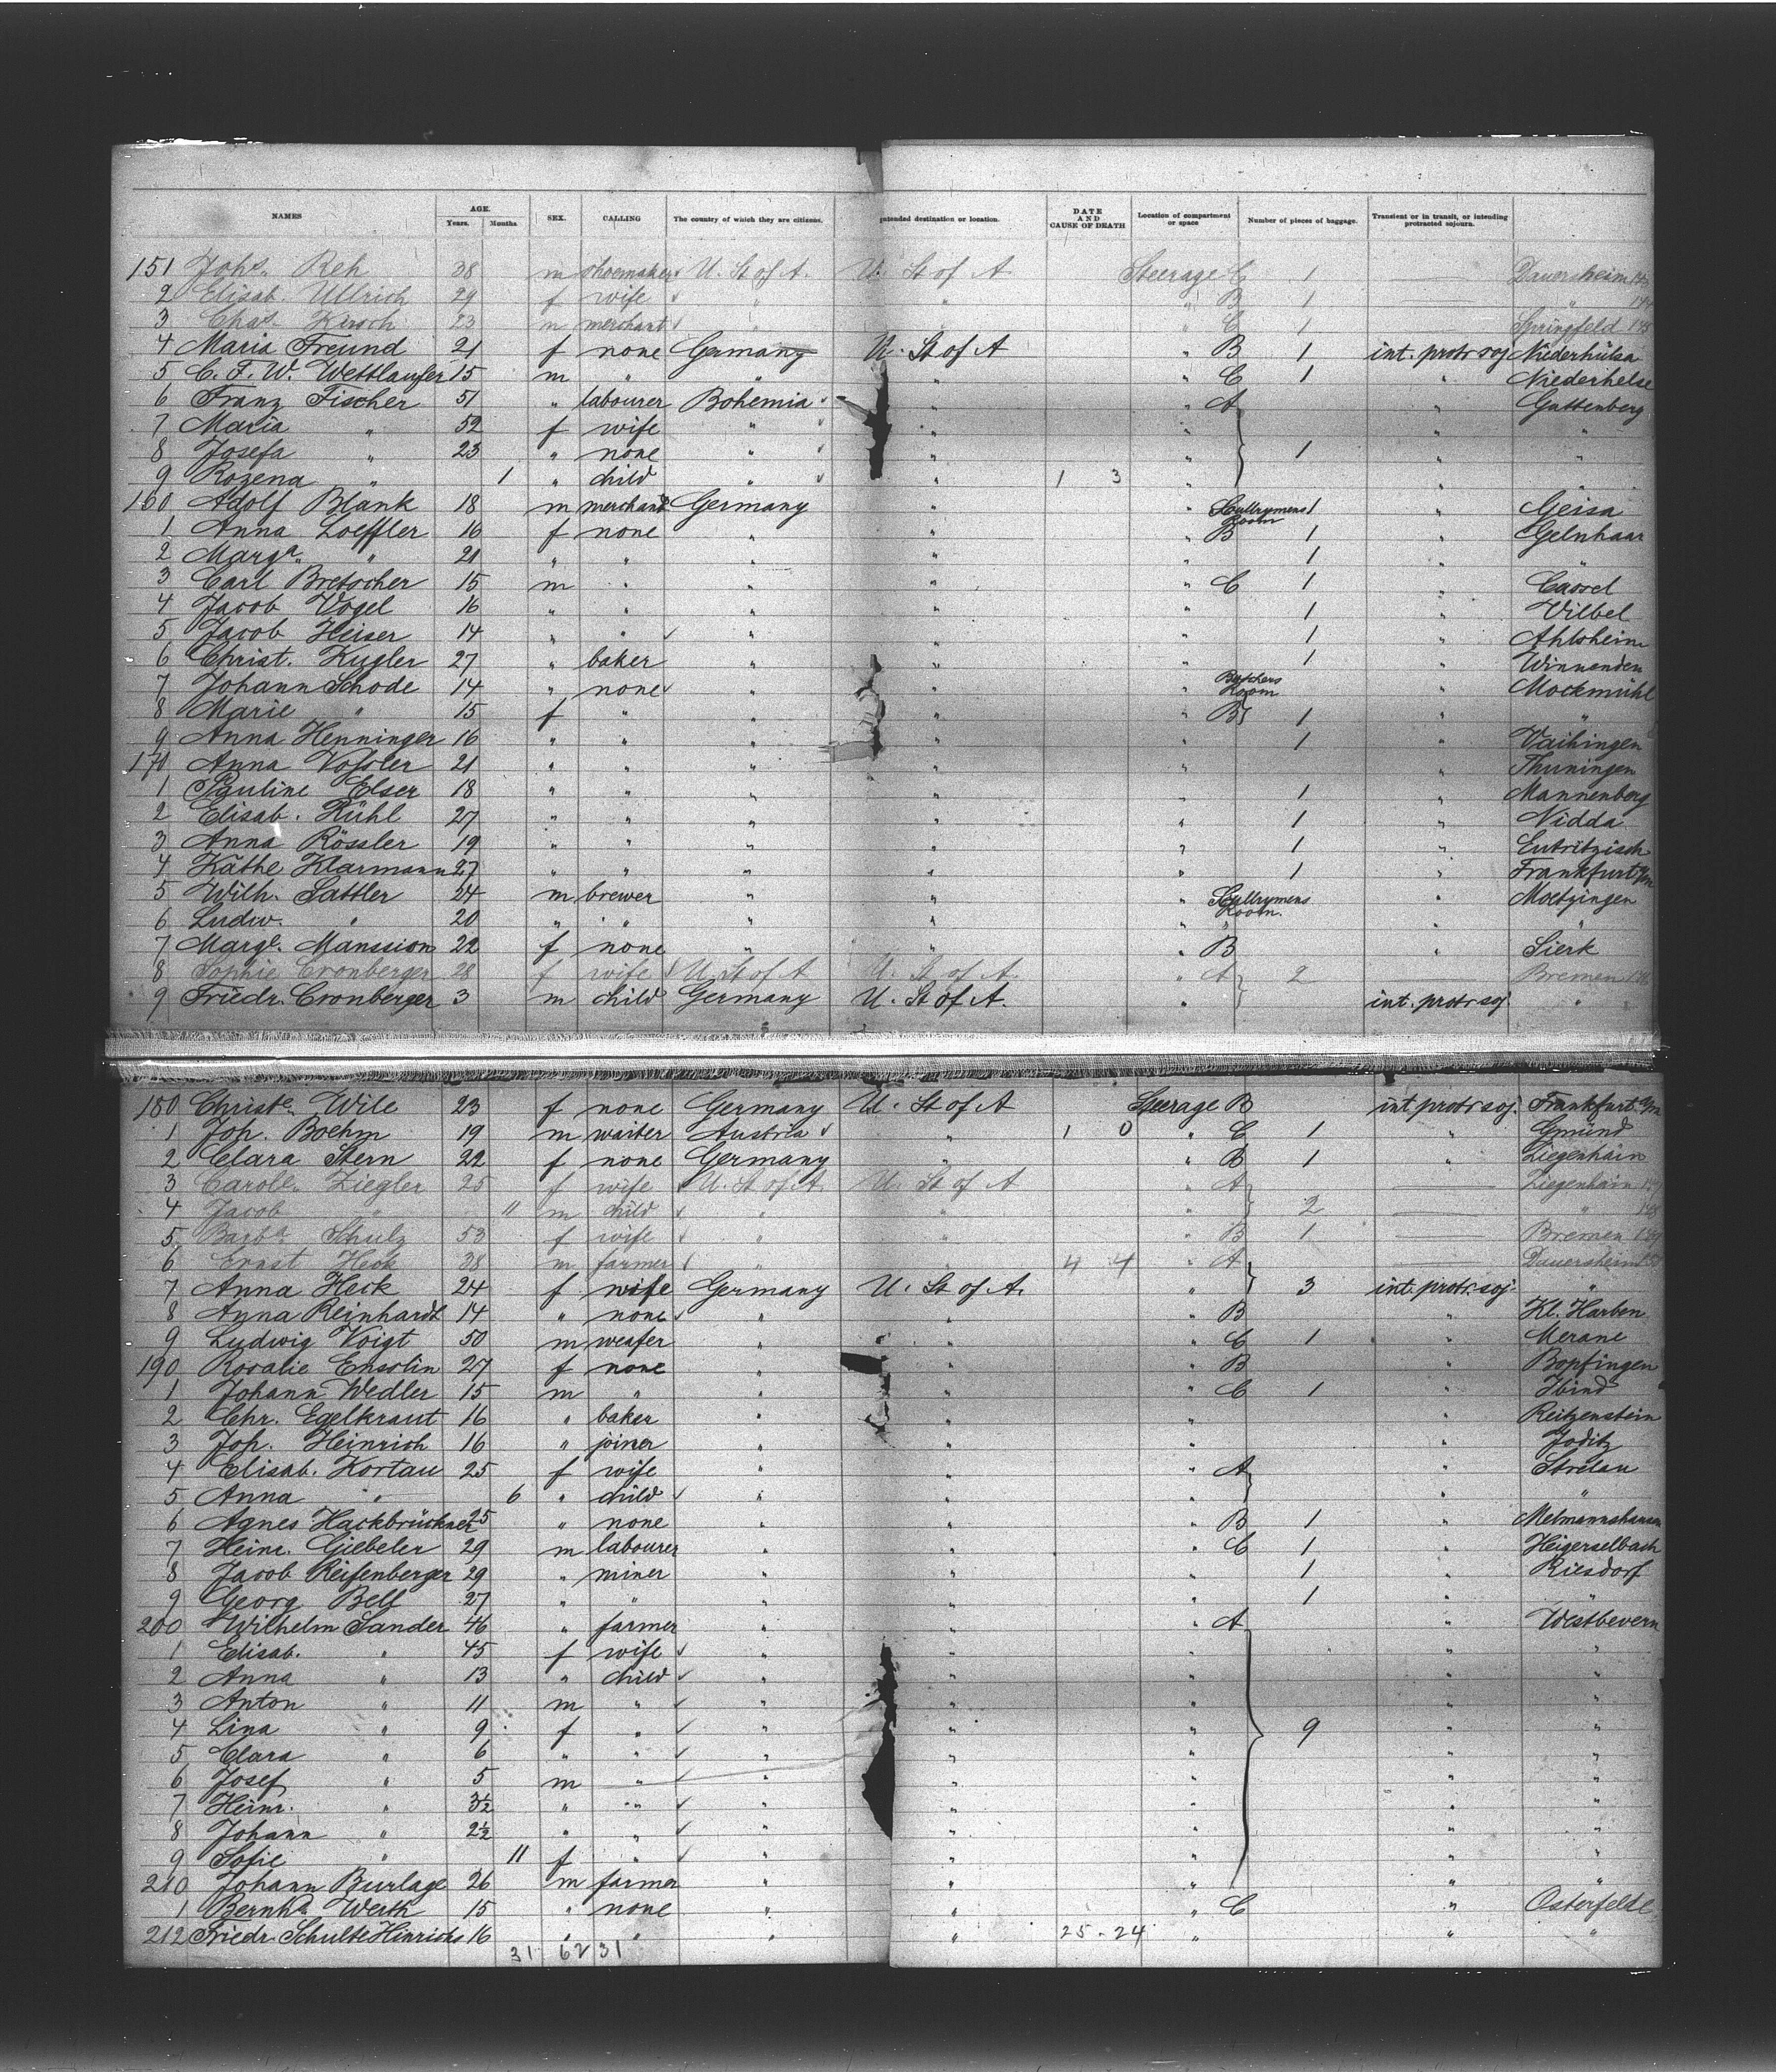 NAMES AGE. Years. Months. SEX. CALLING The country of which they are citizens. Intended destination or location. DATE AND CAUSE OF DEATH Location of compartment or space Number of pieces of baggage. Transient or in transit, or intending protracted sojourn.
151 Johs. Reh 38 m shoemaker U. St of A. U. St of A Steerage C 1 — Dauernheim
2 Elisab. Ullrich 29 f wife " " " B 1 — "
3 Chas. Kirsch 23 m merchant " " " C 1 — Springfeld
4 Maria Freund 21 f none Germany U. St of A " B 1 int. protr soj Niederhülsa
5 C. F. W. Wettlaufer 15 m " " " " C 1 " Niederhelse
6 Franz Fischer 51 " labourer Bohemia " " A " Gattenberg
7 Maria " 52 f wife " " " " "
8 Josefa " 23 " none " " " 1 " "
9 Rozena " 1 " child " " 1 3 " " "
160 Adolf Blank 18 m merchant Germany " " Scullrymens Room 1 " Geisa
1 Anna Loeffler 16 f none " " " B 1 " Gelnhaar
2 Marga. " 21 " " " " " 1 " "
3 Carl Bretscher 15 m " " " " C 1 " Cassel
4 Jacob Vogel 16 " " " " " 1 " Vilbel
5 Jacob Heiser 14 " " " " " 1 " Ahlsheim
6 Christ. Kugler 27 " baker " " " 1 " Winnenden
7 Johann Schode 14 " none " " " Butchers Room " Mockmühl
8 Marie " 15 f " " " " B 1 " "
9 Anna Henninger 16 " " " " " 1 " Vaihingen
170 Anna Vossler 21 " " " " " " Thuningen
1 Pauline Elser 18 " " " " " 1 " Mannenberg
2 Elisab. Rühl 27 " " " " " 1 " Nidda
3 Anna Rössler 19 " " " " " 1 " Eutritzsch
4 Käthe Klarmann 27 " " " " " 1 " Frankfurt a/m
5 Wilh. Sattler 24 m brewer " " " Scullrymens Room. " Moetzingen
6 Ludw. " 20 " " " " " " " "
7 Margt. Manssion 22 f none " " " B " Sierk
8 Sophie Cronberger 28 f wife U. St of A U. St. of A. " A 2 Bremen
9 Friedr. Cronberger 3 m child Germany U. St of A. " int. protr soj. "
180 Christe. Wile 23 f none Germany U. St of A Steerage B int. protr soj. Frankfurt a/m
1 Joh. Boehm 19 m waiter Austria " 1 0 " C 1 " Gmünd
2 Clara Stern 22 f none Germany " " B 1 " Ziegenhain
3 Carole. Ziegler 25 f wife U. St of A. U. St of A " A — Ziegenhain
4 Jacob " 11 m child " " " 2 — "
5 Barba. Schulz 53 f wife " " " B 1 — Bremen
6 Ernst Heck 38 m farmer " " 4 4 " A — Dauernheim
7 Anna Heck 24 f wife Germany U. St of A. " 3 int. protr. soj. "
8 Anna Reinhardt 14 " none " " " B " Kl. Harben
9 Ludwig Voigt 50 m weafer " " " C 1 " Merane
190 Rosalie Ensslin 27 f none " " " B " Bopfingen
1 Johann Wedler 15 m " " " " C 1 " Ibind
2 Chr. Egelkraut 16 " baker " " " " Reitzenstein
3 Joh. Heinrich 16 " joiner " " " " Joditz
4 Elisab. Kortau 25 f wife " " " A " Strelau
5 Anna " 6 " child " " " " "
6 Agnes Hackbrückner 25 " none " " " B 1 " Melmannshausen
7 Heinr. Giebeler 29 m labourer " " " C 1 " Heigerselbach
8 Jacob Reifenberger 29 " miner " " " 1 " Riesdorf
9 Georg Bell 27 " " " " " 1 " "
200 Wilhelm Sander 46 " farmer " " " A " Westbevern
1 Elisab. " 45 f wife " " " " "
2 Anna " 13 " child " " " " "
3 Anton " 11 m " " " " " "
4 Lina " 9 f " " " " 9 " "
5 Clara " 6 " " " " " " "
6 Josef " 5 m " " " " " "
7 Heinr. " 3½ " " " " " " "
8 Johann " 2½ " " " " " " "
9 Sofie " 11 f " " " " " "
210 Johann Burlage 26 m farmer " " " " "
1 Bernhd. Werth 15 " none " " " C " Osterfelde
212 Friedr. Schulte Hinrichs 16 " " " " 25 - 24 " " "
31 62 31